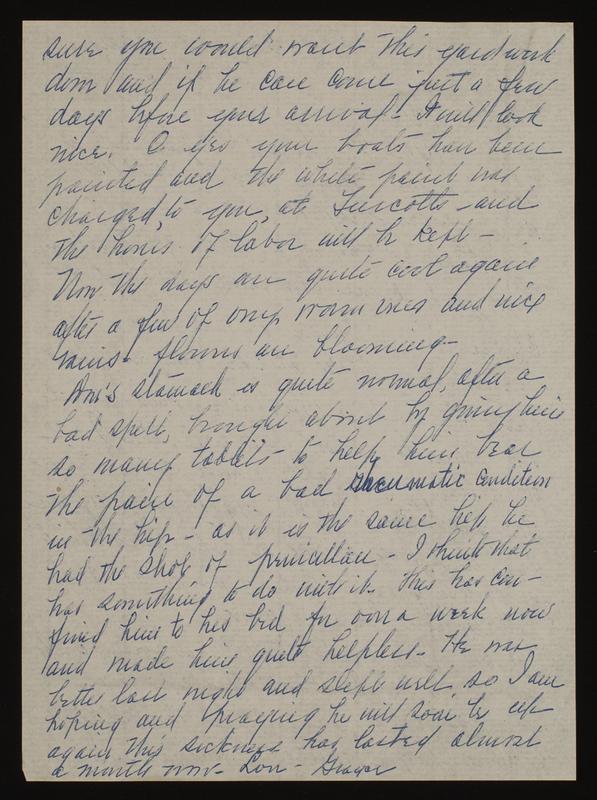 sure you would want this yard work
done and if he can come just a few
days before your arrival - It will look
nice. O yes your boats have been
painted and the white paint was
charged to you, at Turcotts - and
the hours of labor will be kept -
Now the days are quite cool again
after a few of only warm ones and nice
rains - flowers are blooming -
stomach is quite normal, after a
bad spell, brought about by giving him
so many tablets to help him bear
the pain of a bad rheumatic condition
in the hip - as it is the same hip he
had the shots of penicillin - I think that
has something to do with it. This has con-
fined him to his bed for over a week now
and made him quite helpless - He was
better last night and slept well so I am
hoping and praying he will soon be up
again this sickness has lasted almost
a month now - Love - Grace